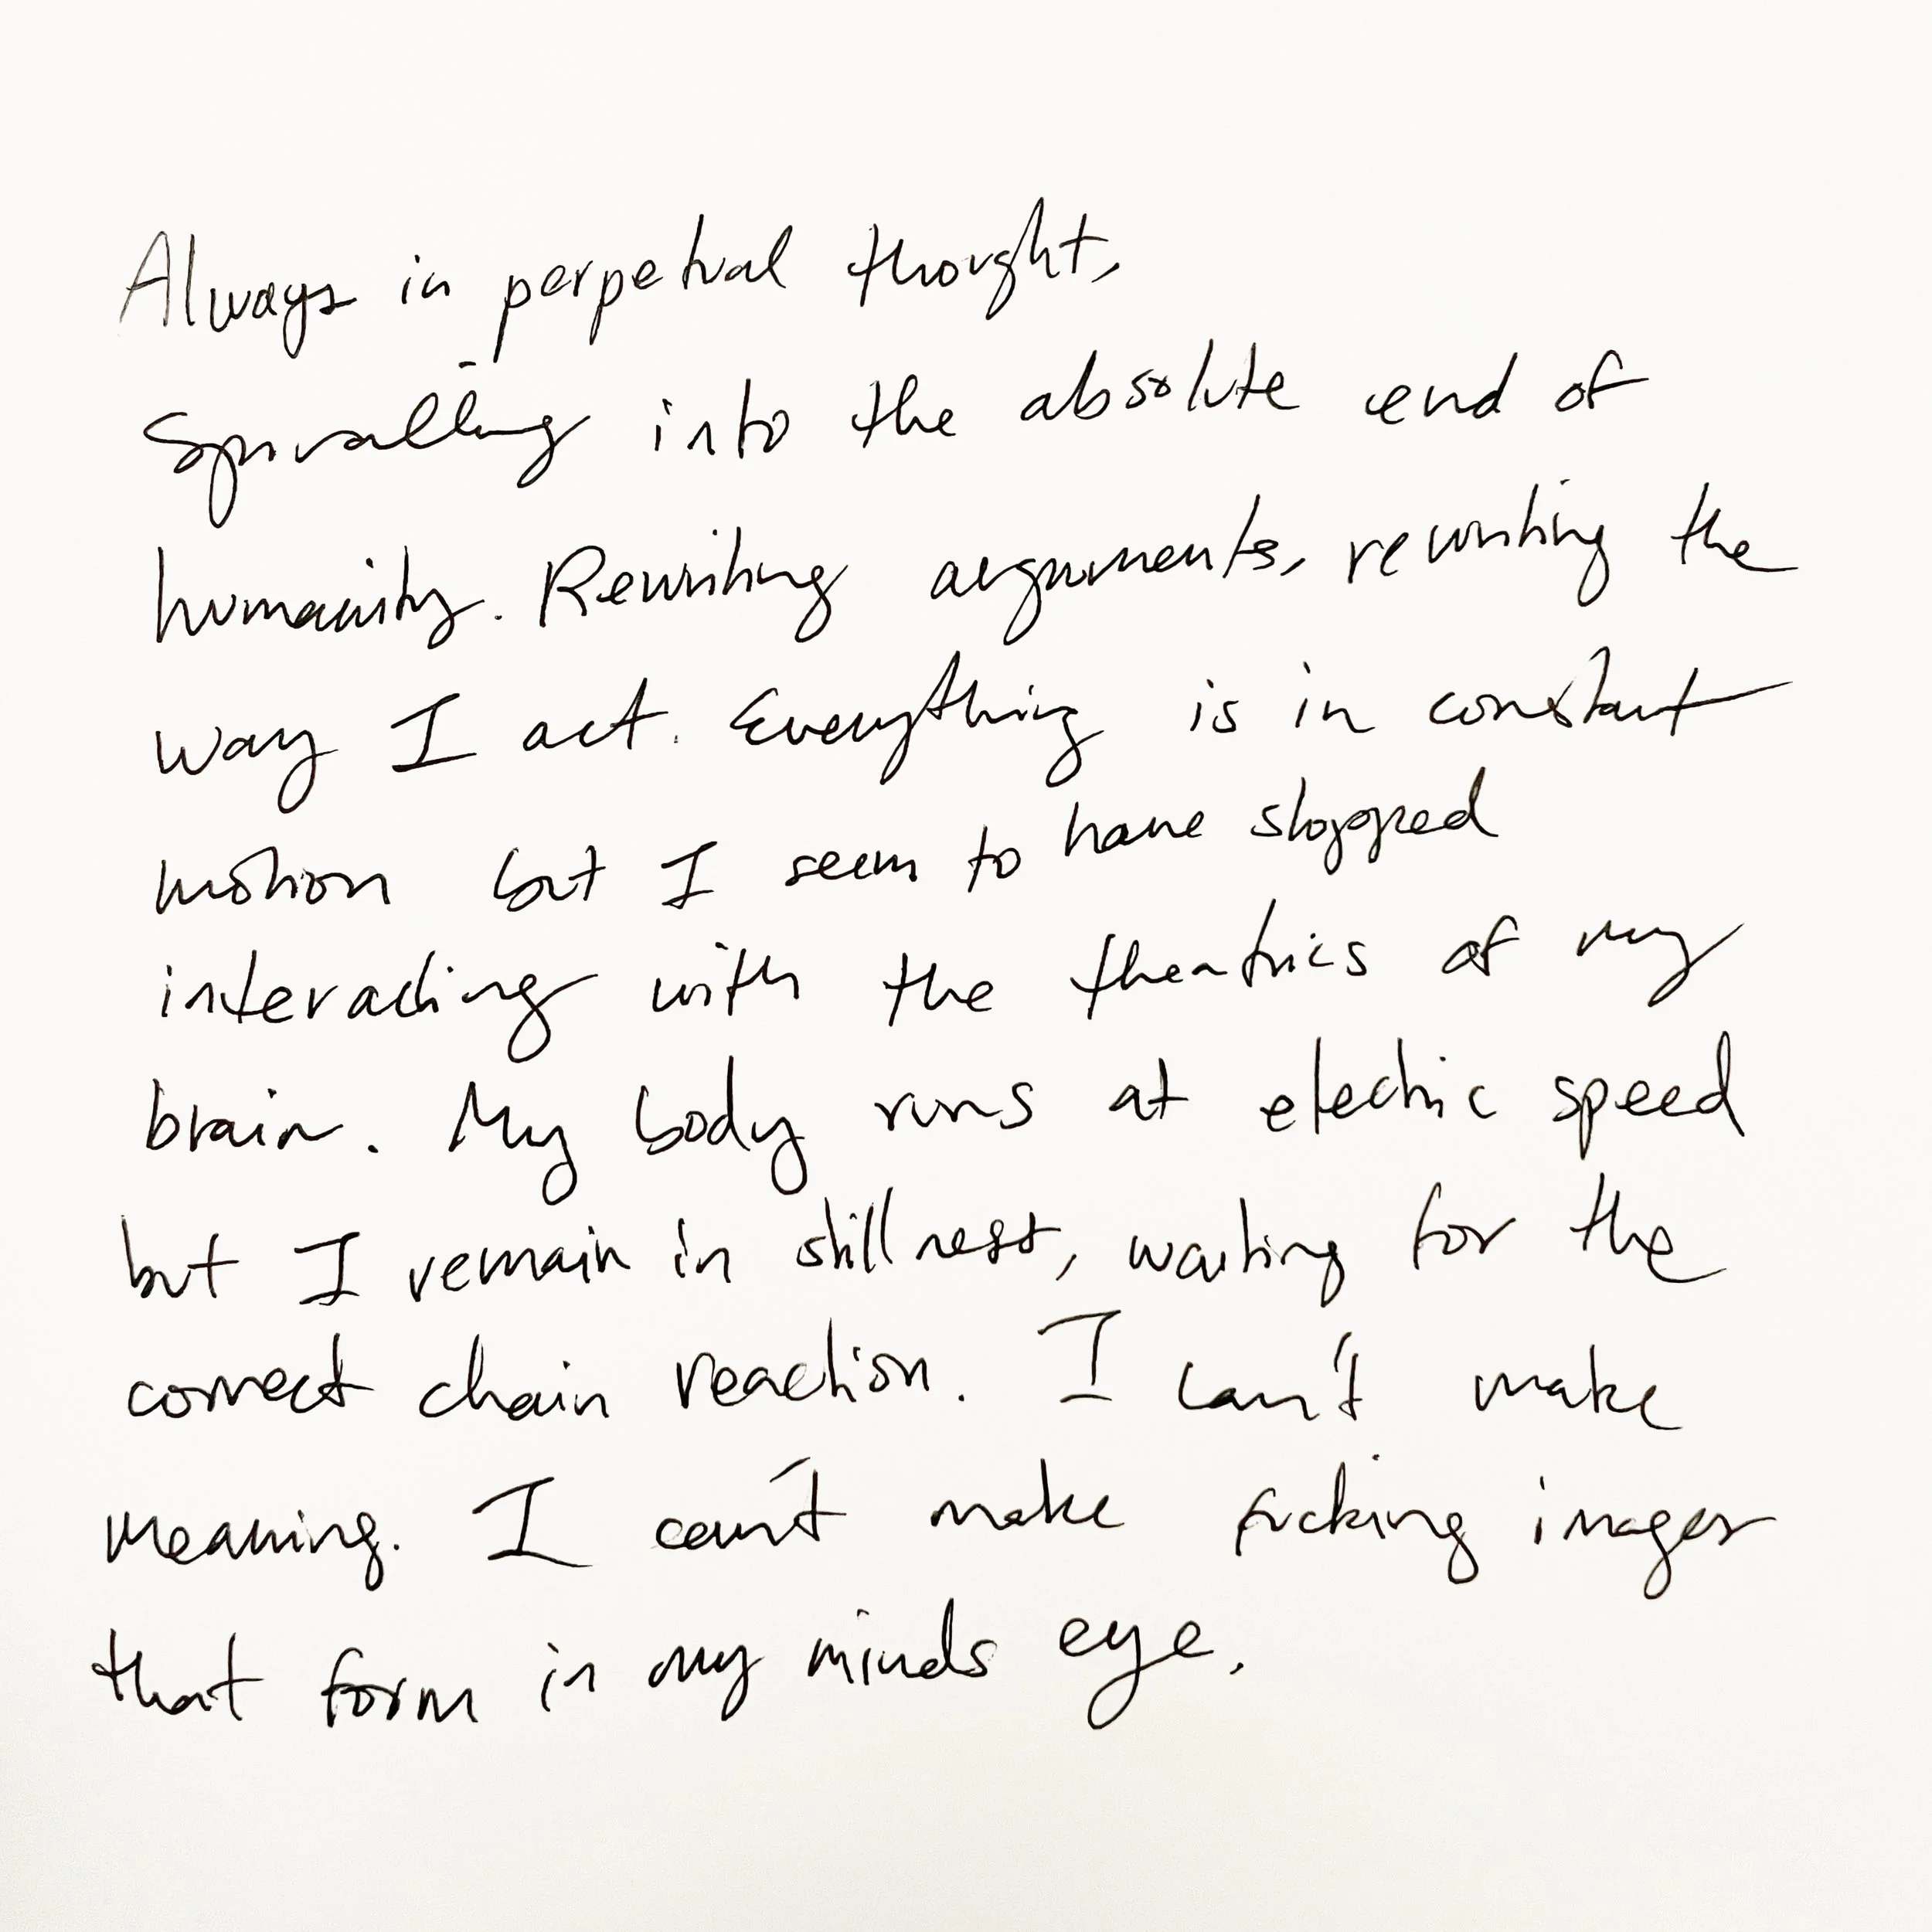 Always in perpetual thought,
Spiralling into the absolute end of
humanity. Rewriting arguments, rewriting the
way I act. Everything is in constant
motion but I seem to have stopped
interacting with the theatrics of my
brain. My body runs at electric speed
but I remain in stillness, waiting for the
correct chain reaction. I can't make
meaning. I can't make fucking images
that form in my minds eye.